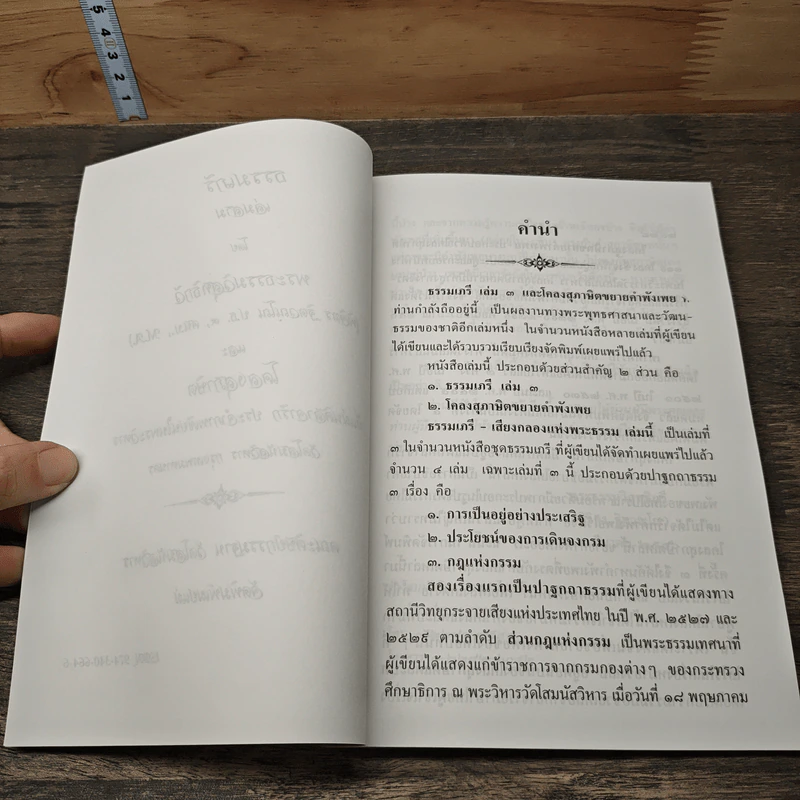 5 4 3 2 1
คำนำ
ธรรมเภรี เล่ม ๓ และโคลงสุภาษิตขยายคำพังเพย
ท่านกำลังถืออยู่นี้ เป็นผลงานทางพระพุทธศาสนาและวัฒน-
ธรรมของชาติอีกเล่มหนึ่ง ในจำนวนหนังสือหลายเล่มที่ผู้เขียน
ได้เขียนและได้รวบรวมเรียบเรียงจัดพิมพ์เผยแพร่ไปแล้ว
หนังสือเล่มนี้ ประกอบด้วยส่วนสำคัญ ๒ ส่วน คือ
๑. ธรรมเภรี เล่ม ๓
๒. โคลงสุภาษิตขยายคำพังเพย
ธรรมเภรี - เสียงกลองแห่งพระธรรม เล่มนี้ เป็นเล่มที่
๓ ในจำนวนหนังสือชุดธรรมเภรี ที่ผู้เขียนได้จัดทำเผยแพร่ไปแล้ว
จำนวน ๔ เล่ม เฉพาะเล่มที่ ๓ นี้ ประกอบด้วยปาฐกถาธรรม
๓ เรื่อง คือ
๑. การเป็นอยู่อย่างประเสริฐ
๒. ประโยชน์ของการเดินจงกรม
๓. กฎแห่งกรรม
สองเรื่องแรกเป็นปาฐกถาธรรมที่ผู้เขียนได้แสดงทาง
สถานีวิทยุกระจายเสียงแห่งประเทศไทย ในปี พ.ศ. ๒๕๒๗ และ
๒๕๒๙ ตามลำดับ ส่วนกฎแห่งกรรม เป็นพระธรรมเทศนาที่
ผู้เขียนได้แสดงแก่ข้าราชการจากกรมกองต่างๆ ของกระทรวง
ศึกษาธิการ ณ พระวิหารวัดโสมนัสวิหาร เมื่อวันที่ ๑๘ พฤษภาคม